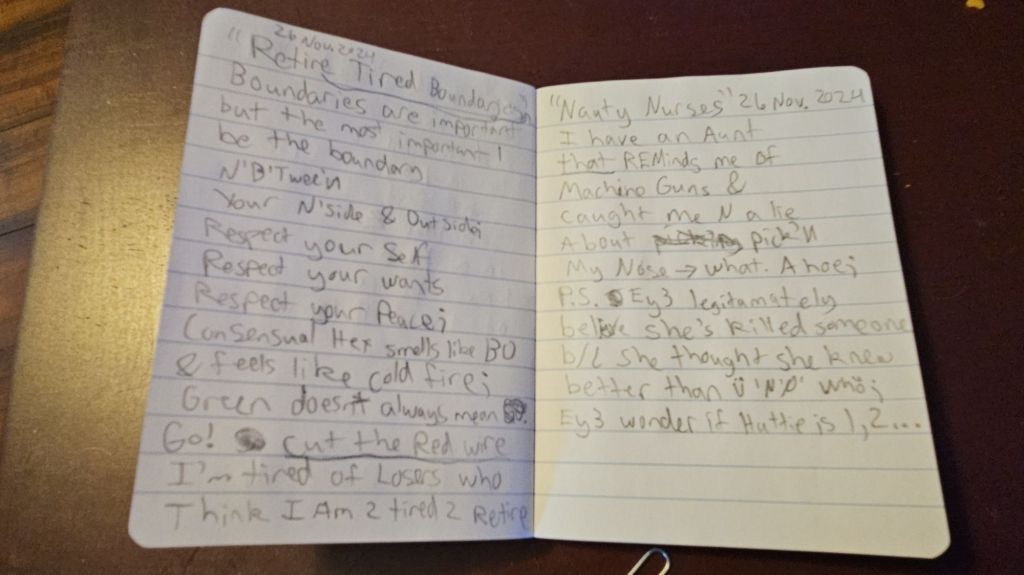 26 Nov. 2024
"Retire Tired Boundaries"
Boundaries are important
but the most important 1
be the boundary
N'B'Twee'n
Your N'side & Outside;
Respect your Self
Respect your wants
Respect your Peace;
Consensual Hex smells like BO
& feels like cold fire;
Green doesn't always mean
Go! cut the Red wire
I'm tired of Losers who
Think I Am 2 tired 2 Retire
"Nauty Nurses" 26 Nov. 2024
I have an Aunt
that REMinds me of
Machine Guns &
caught me N a lie
About pick'n
My Nose → what. A hoe;
P.S. Ey3 legitamately
believe she's killed someone
b/c she thought she knew
better than Ü 'N'O' who;
Ey3 wonder if Hattie is 1, 2...